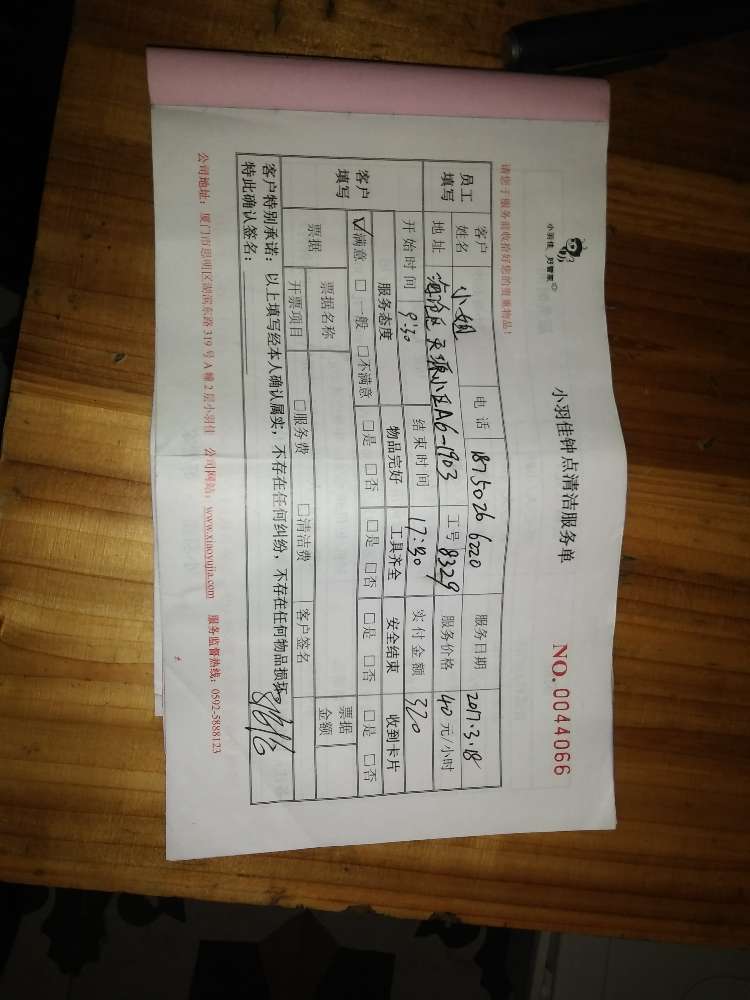 小羽佳 好管家
小羽佳钟点清洁服务单
NO. 0044066
请您于服务前收拾好您的贵重物品！
员工填写
客户姓名 小姐 电话 1875026 6220 服务日期 2017.3.18
地址 海沧区 天源小区A6-1903 工号 8329 服务价格 40元/小时
开始时间 9:30 结束时间 17:30 实付金额 320
客户填写
服务态度 物品完好 工具齐全 安全结束 收到卡片
☑满意 □一般 □不满意 □是 □否 □是 □否 □是 □否 □是 □否
票据 票据名称 票据金额
开票项目 □服务费 □清洁费 客户签名
客户特别承诺：以上填写经本人确认属实，不存在任何纠纷，不存在任何物品损坏。
特此确认签名：
公司地址：厦门市思明区湖滨东路 319 号 A 幢 2 层小羽佳 公司网站：www.xiaoyujia.com 服务监督热线：0592-5888123